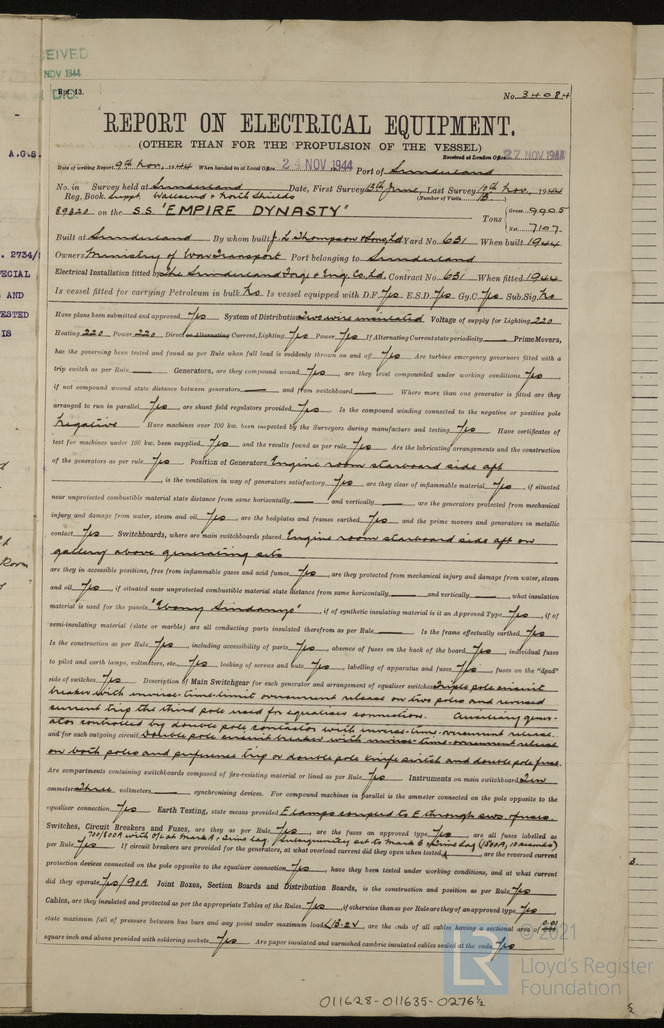 CEIVED
NOV 1944
D.O.
Rpt. 13.
No. 34084
REPORT ON ELECTRICAL EQUIPMENT.
(OTHER THAN FOR THE PROPULSION OF THE VESSEL)
A.G.S.
Received at London Office 27 NOV 1944
Date of writing Report 9th Nov. 1944 When handed in at Local Office 24 NOV 1944 Port of Sunderland
No. in Survey held at Sunderland Date, First Survey 13th June, Last Survey 10th Nov. 1944
Reg. Book. Suppt. Wallsend & North Shields (Number of Visits 13.)
89320 on the S.S. "EMPIRE DYNASTY" Tons Gross 9905
Net 7107
Built at Sunderland By whom built J. L. Thompson & Sons Ltd Yard No. 631 When built 1944
Owners Ministry of War Transport Port belonging to Sunderland
Electrical Installation fitted by The Sunderland Forge & Eng. Co. Ltd. Contract No. 631 When fitted 1944
Is vessel fitted for carrying Petroleum in bulk No Is vessel equipped with D.F. Yes E.S.D. Yes Gy.C. Yes Sub.Sig. No
Have plans been submitted and approved Yes System of Distribution Two wire insulated Voltage of supply for Lighting 220
Heating 220 Power 220 Direct or Alternating Current, Lighting Yes Power Yes If Alternating Current state periodicity — Prime Movers,
has the governing been tested and found as per Rule when full load is suddenly thrown on and off Yes Are turbine emergency governors fitted with a
trip switch as per Rule — Generators, are they compound wound Yes, are they level compounded under working conditions Yes,
if not compound wound state distance between generators — and from switchboard — Where more than one generator is fitted are they
arranged to run in parallel Yes, are shunt field regulators provided Yes Is the compound winding connected to the negative or positive pole
Negative Have machines over 100 kw. been inspected by the Surveyors during manufacture and testing Yes Have certificates of
test for machines under 100 kw. been supplied Yes and the results found as per rule Yes Are the lubricating arrangements and the construction
of the generators as per rule Yes Position of Generators Engine room starboard side aft
, is the ventilation in way of generators satisfactory Yes are they clear of inflammable material Yes, if situated
near unprotected combustible material state distance from same horizontally — and vertically —, are the generators protected from mechanical
injury and damage from water, steam and oil Yes, are the bedplates and frames earthed Yes and the prime movers and generators in metallic
contact Yes Switchboards, where are main switchboards placed Engine room starboard side aft on
gallery above generating sets
are they in accessible positions, free from inflammable gases and acid fumes Yes, are they protected from mechanical injury and damage from water, steam
and oil Yes, if situated near unprotected combustible material state distance from same horizontally — and vertically —, what insulation
material is used for the panels "Ebony Sindanyo", if of synthetic insulating material is it an Approved Type Yes, if of
semi-insulating material (slate or marble) are all conducting parts insulated therefrom as per Rule — Is the frame effectually earthed Yes
Is the construction as per Rule Yes, including accessibility of parts Yes, absence of fuses on the back of the board Yes, individual fuses
to pilot and earth lamps, voltmeters, etc. Yes, locking of screws and nuts Yes, labelling of apparatus and fuses Yes, fuses on the "dead"
side of switches Yes Description of Main Switchgear for each generator and arrangement of equaliser switches Triple pole circuit
breaker with inverse-time-limit overcurrent release on two poles and reversed
current trip the third pole used for equaliser connections. Auxiliary gener-
ator controlled by double pole contactor with inverse-time-overcurrent release.
and for each outgoing circuit Double pole circuit breaker with inverse-time-overcurrent release
on both poles and preference trip or double pole knife switch and double pole fuses.
Are compartments containing switchboards composed of fire-resisting material or lined as per Rule Yes Instruments on main switchboard Two
ammeters Three voltmeters — synchronising devices. For compound machines in parallel is the ammeter connected on the pole opposite to the
equaliser connection Yes Earth Testing, state means provided E lamps coupled to E through sws. & fuses.
Switches, Circuit Breakers and Fuses, are they as per Rule Yes, are the fuses an approved type Yes, are all fuses labelled as
per Rule Yes If circuit breakers are provided for the generators, at what overload current did they open when tested, are the reversed current
protection devices connected on the pole opposite to the equaliser connection Yes, have they been tested under working conditions, and at what current
did they operate Yes/90A Joint Boxes, Section Boards and Distribution Boards, is the construction and position as per Rule Yes
Cables, are they insulated and protected as per the appropriate Tables of the Rules Yes, if otherwise than as per Rule are they of an approved type Yes
state maximum fall of pressure between bus bars and any point under maximum load, are the ends of all cables having a sectional area of 0.01
square inch and above provided with soldering sockets Yes Are paper insulated and varnished cambric insulated cables sealed at the ends Yes
011628-011635-0276½
© 2021
LR
Lloyd's Register
Foundation
. 2734/
PECIAL
AND
ESTED
IS
Room